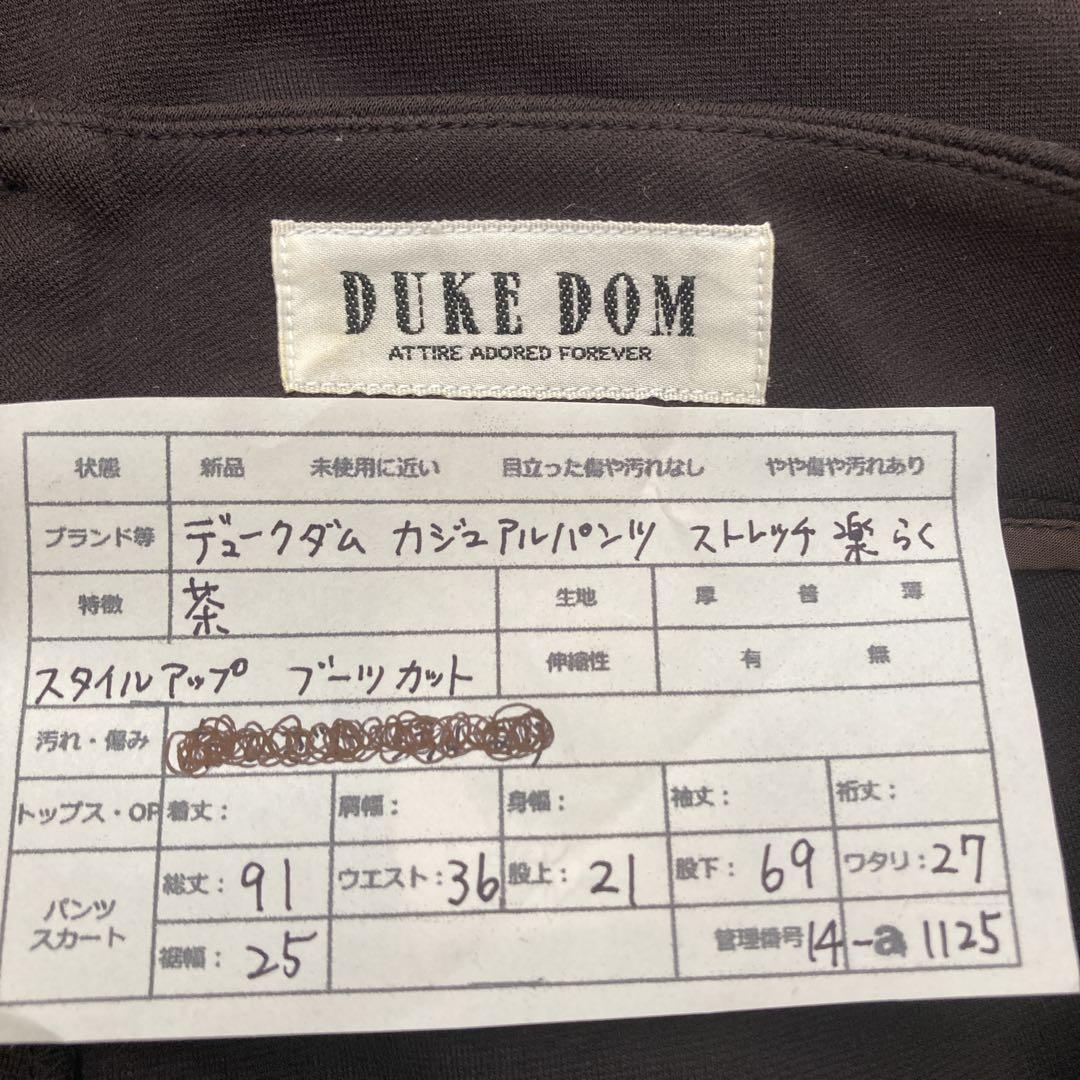 DUKE DOM
ATTIRE ADORED FOREVER
状態 新品 未使用に近い 目立った傷や汚れなし やや傷や汚れあり
ブランド等 デュークダム カジュアルパンツ ストレッチ 楽 らく
特徴 茶 生地 厚 普 薄
スタイルアップ ブーツカット 伸縮性 有 無
汚れ・傷み
トップス・OP 着丈: 肩幅: 身幅: 袖丈: 裄丈:
パンツ スカート 総丈: 91 ウエスト: 36 股上: 21 股下: 69 ワタリ: 27
裾幅: 25 管理番号 14-a 1125